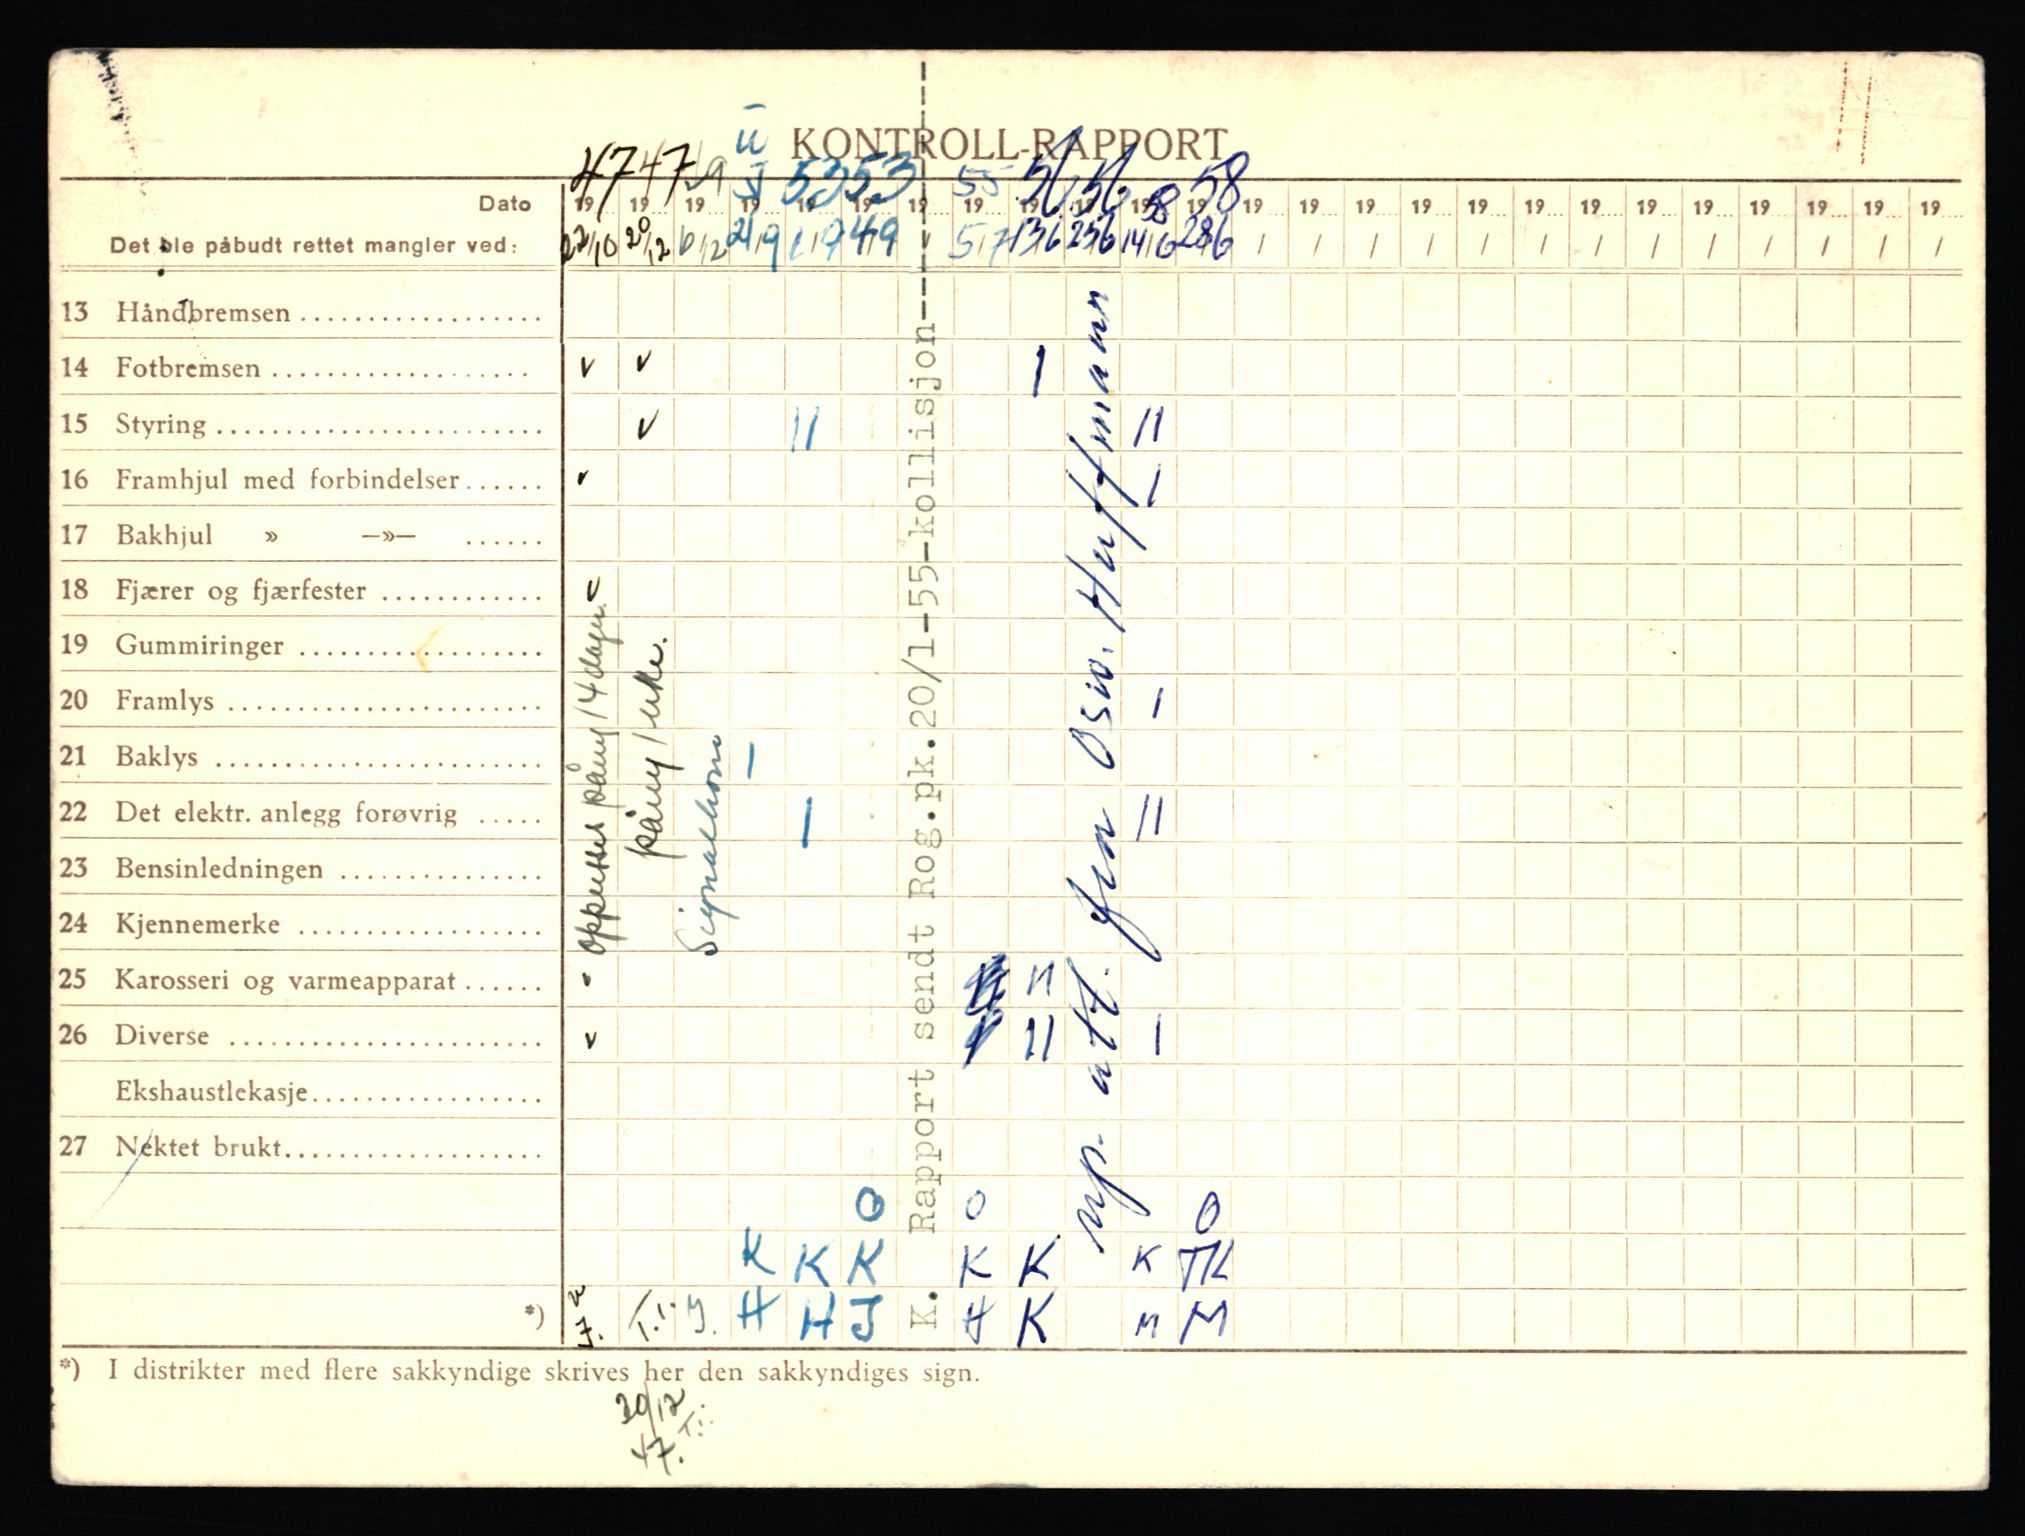 KONTROLL-RAPPORT
47 47 49 53 53 55 56 56 58 58
Dato 19 19 19 19 19 19 19 19 19 19 19 19 19 19 19 19 19 19 19 19 19 19 19 19 19
Det ble påbudt rettet mangler ved: 22/10 20/12 6/12 21/9 1/9 4/9 / 5/7 13/6 25/6 14/6 28/6 / / / / / / / / / / / / /
13 Håndbremsen
14 Fotbremsen v v I
15 Styring v II II
16 Framhjul med forbindelser v I
17 Bakhjul » —»—
18 Fjærer og fjærfester v
19 Gummiringer
20 Framlys I
21 Baklys I
22 Det elektr. anlegg forøvrig I II
23 Bensinledningen
24 Kjennemerke
25 Karosseri og varmeapparat II
26 Diverse v II I
Ekshaustlekasje
27 Nektet brukt
O O O
K K K K K K TK
*) T.i. J. H H J H K M M
påny 14 dager.
påny 1 uke.
Signalhorn
K. Rapport sendt Rog.pk.20/1-55-kollisjon-----------
att. fra Osw. Hoffmann
*) I distrikter med flere sakkyndige skrives her den sakkyndiges sign.
20/12
47. T.i.